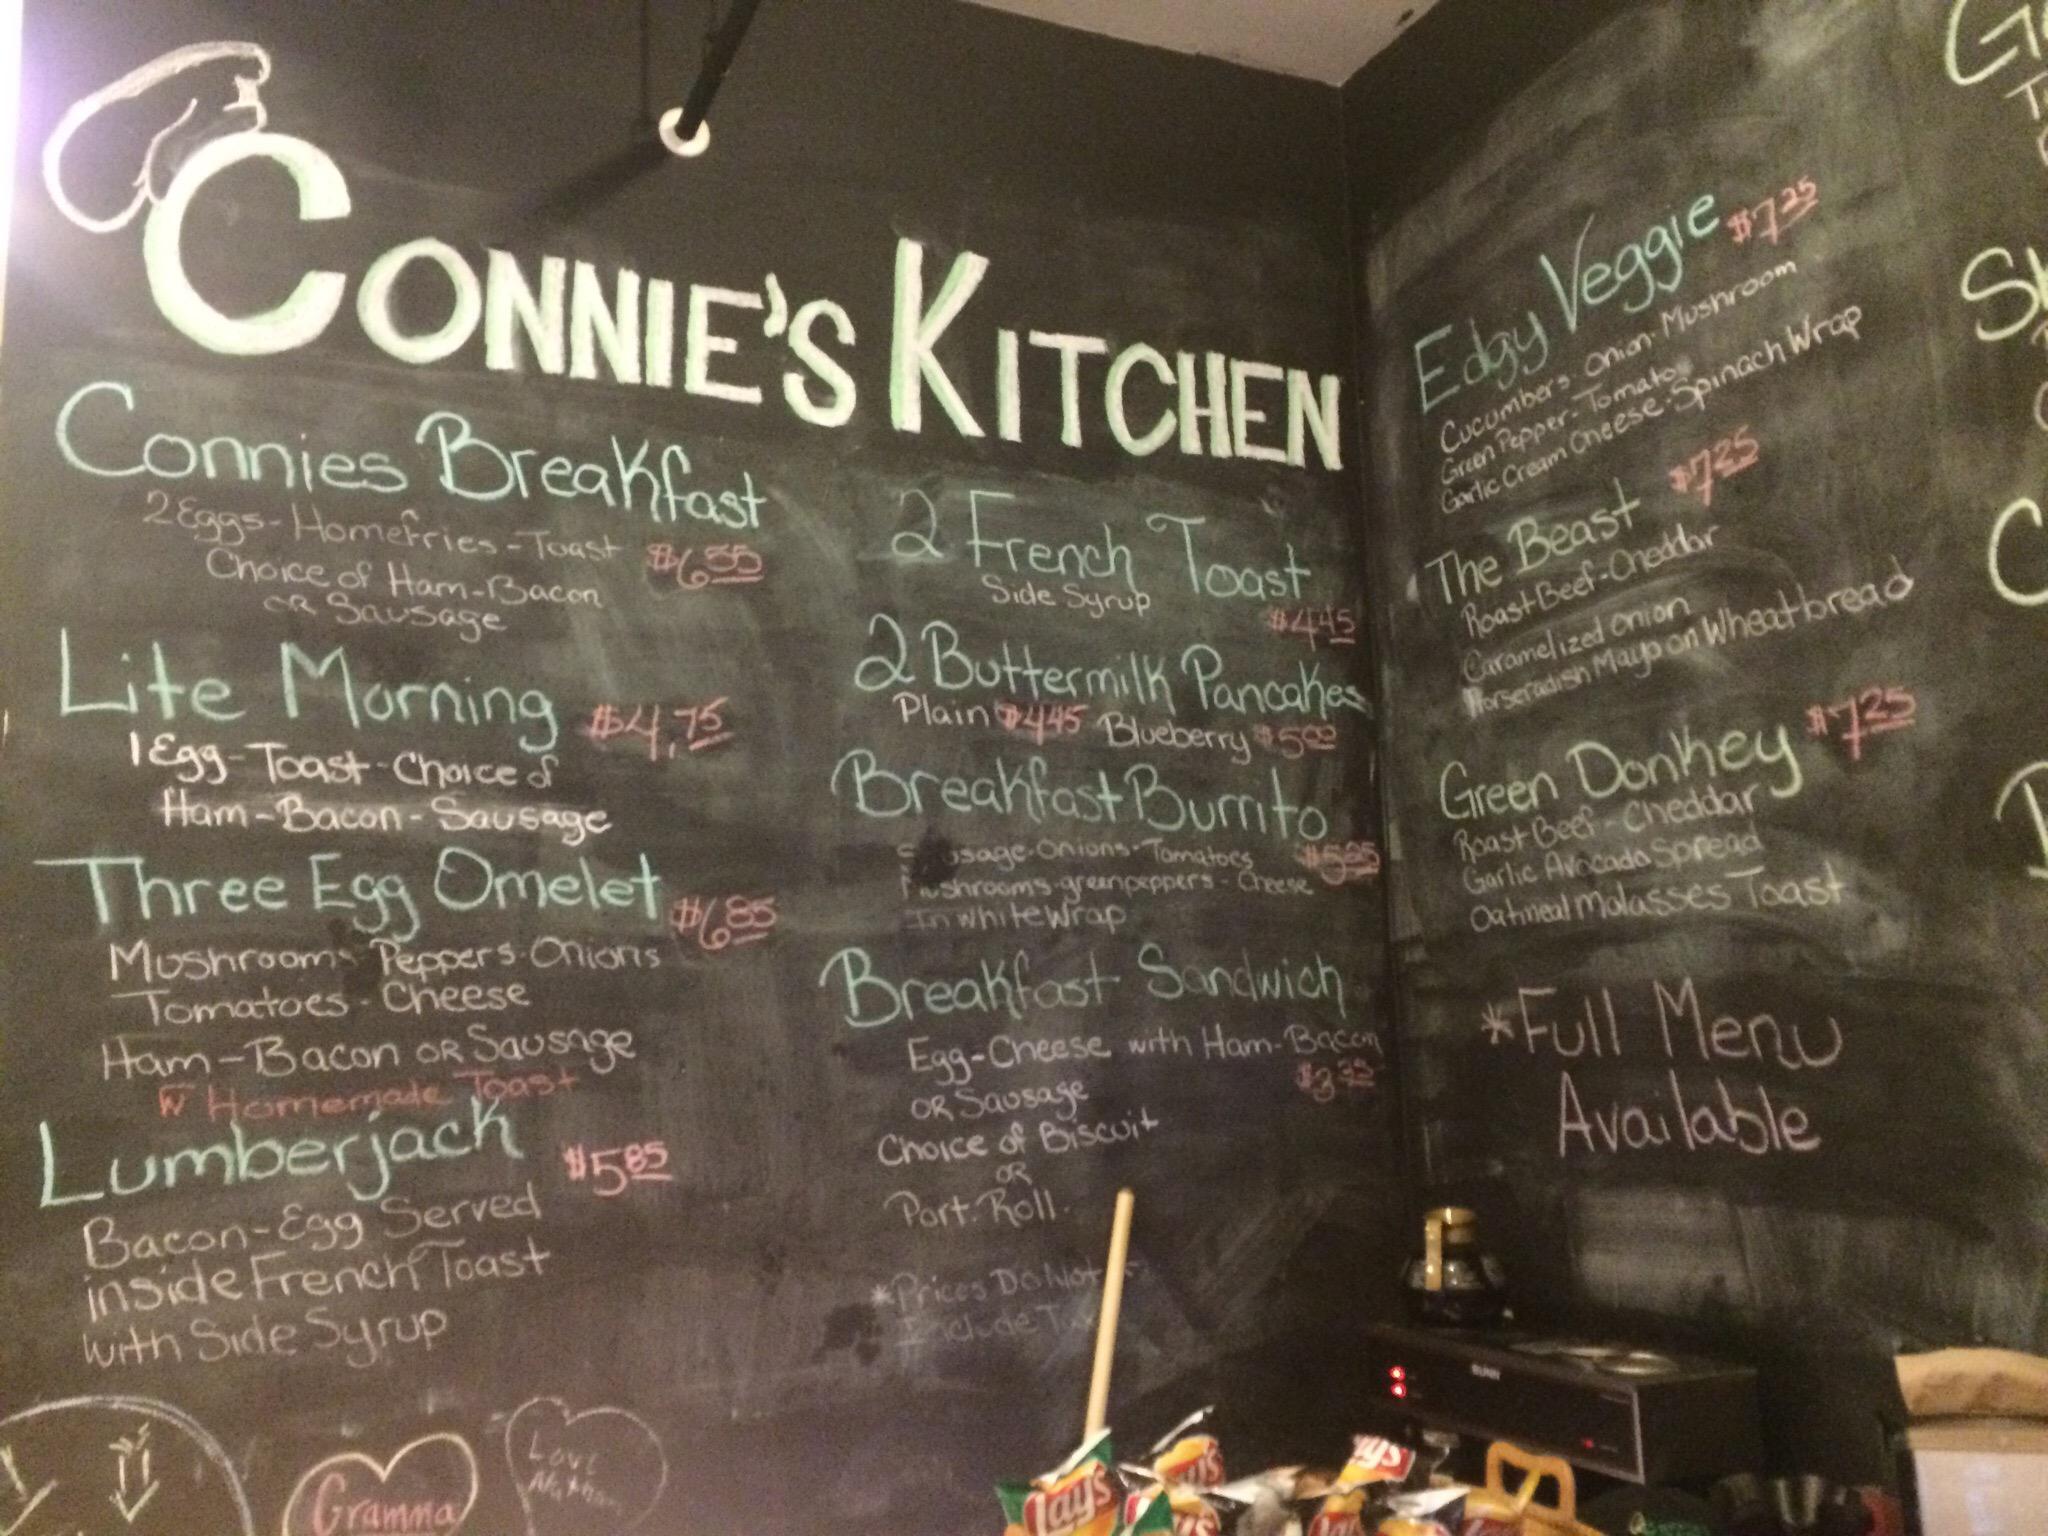 CONNIE'S KITCHEN
Connies Breakfast
2 Eggs - Homefries - Toast
Choice of Ham - Bacon
OR Sausage
Lite Morning $4.75
1 Egg - Toast - Choice of
Ham - Bacon - Sausage
Three Egg Omelet $6.85
Mushrooms Peppers - Onions
Tomatoes - Cheese
Ham - Bacon OR Sausage
W Homemade Toast
Lumberjack $5.85
Bacon - Egg Served
inside French Toast
with Side Syrup
Gramma
Love
2 French Toast
Side Syrup
$4.45
2 Buttermilk Pancakes
Plain $4.45 Blueberry $5.00
Breakfast Burrito
Sausage - Onions - Tomatoes
Mushrooms - greenpeppers - Cheese
In white Wrap
Breakfast Sandwich
Egg - Cheese with Ham - Bacon
OR Sausage
Choice of Biscuit
OR
Port. Roll.
*Prices Do Not
Include
Edgy Veggie $7.25
Cucumbers - Onion - Mushroom
Green Pepper - Tomato
Garlic Cream Cheese - Spinach Wrap
The Beast $7.25
Roast Beef - Cheddar
Caramelized onion
Horseradish Mayo on Wheat bread
Green Donkey $7.25
Roast Beef - Cheddar
Garlic Avocado Spread
Oatmeal Molasses Toast
*Full Menu
Available
BUNN
Lay's